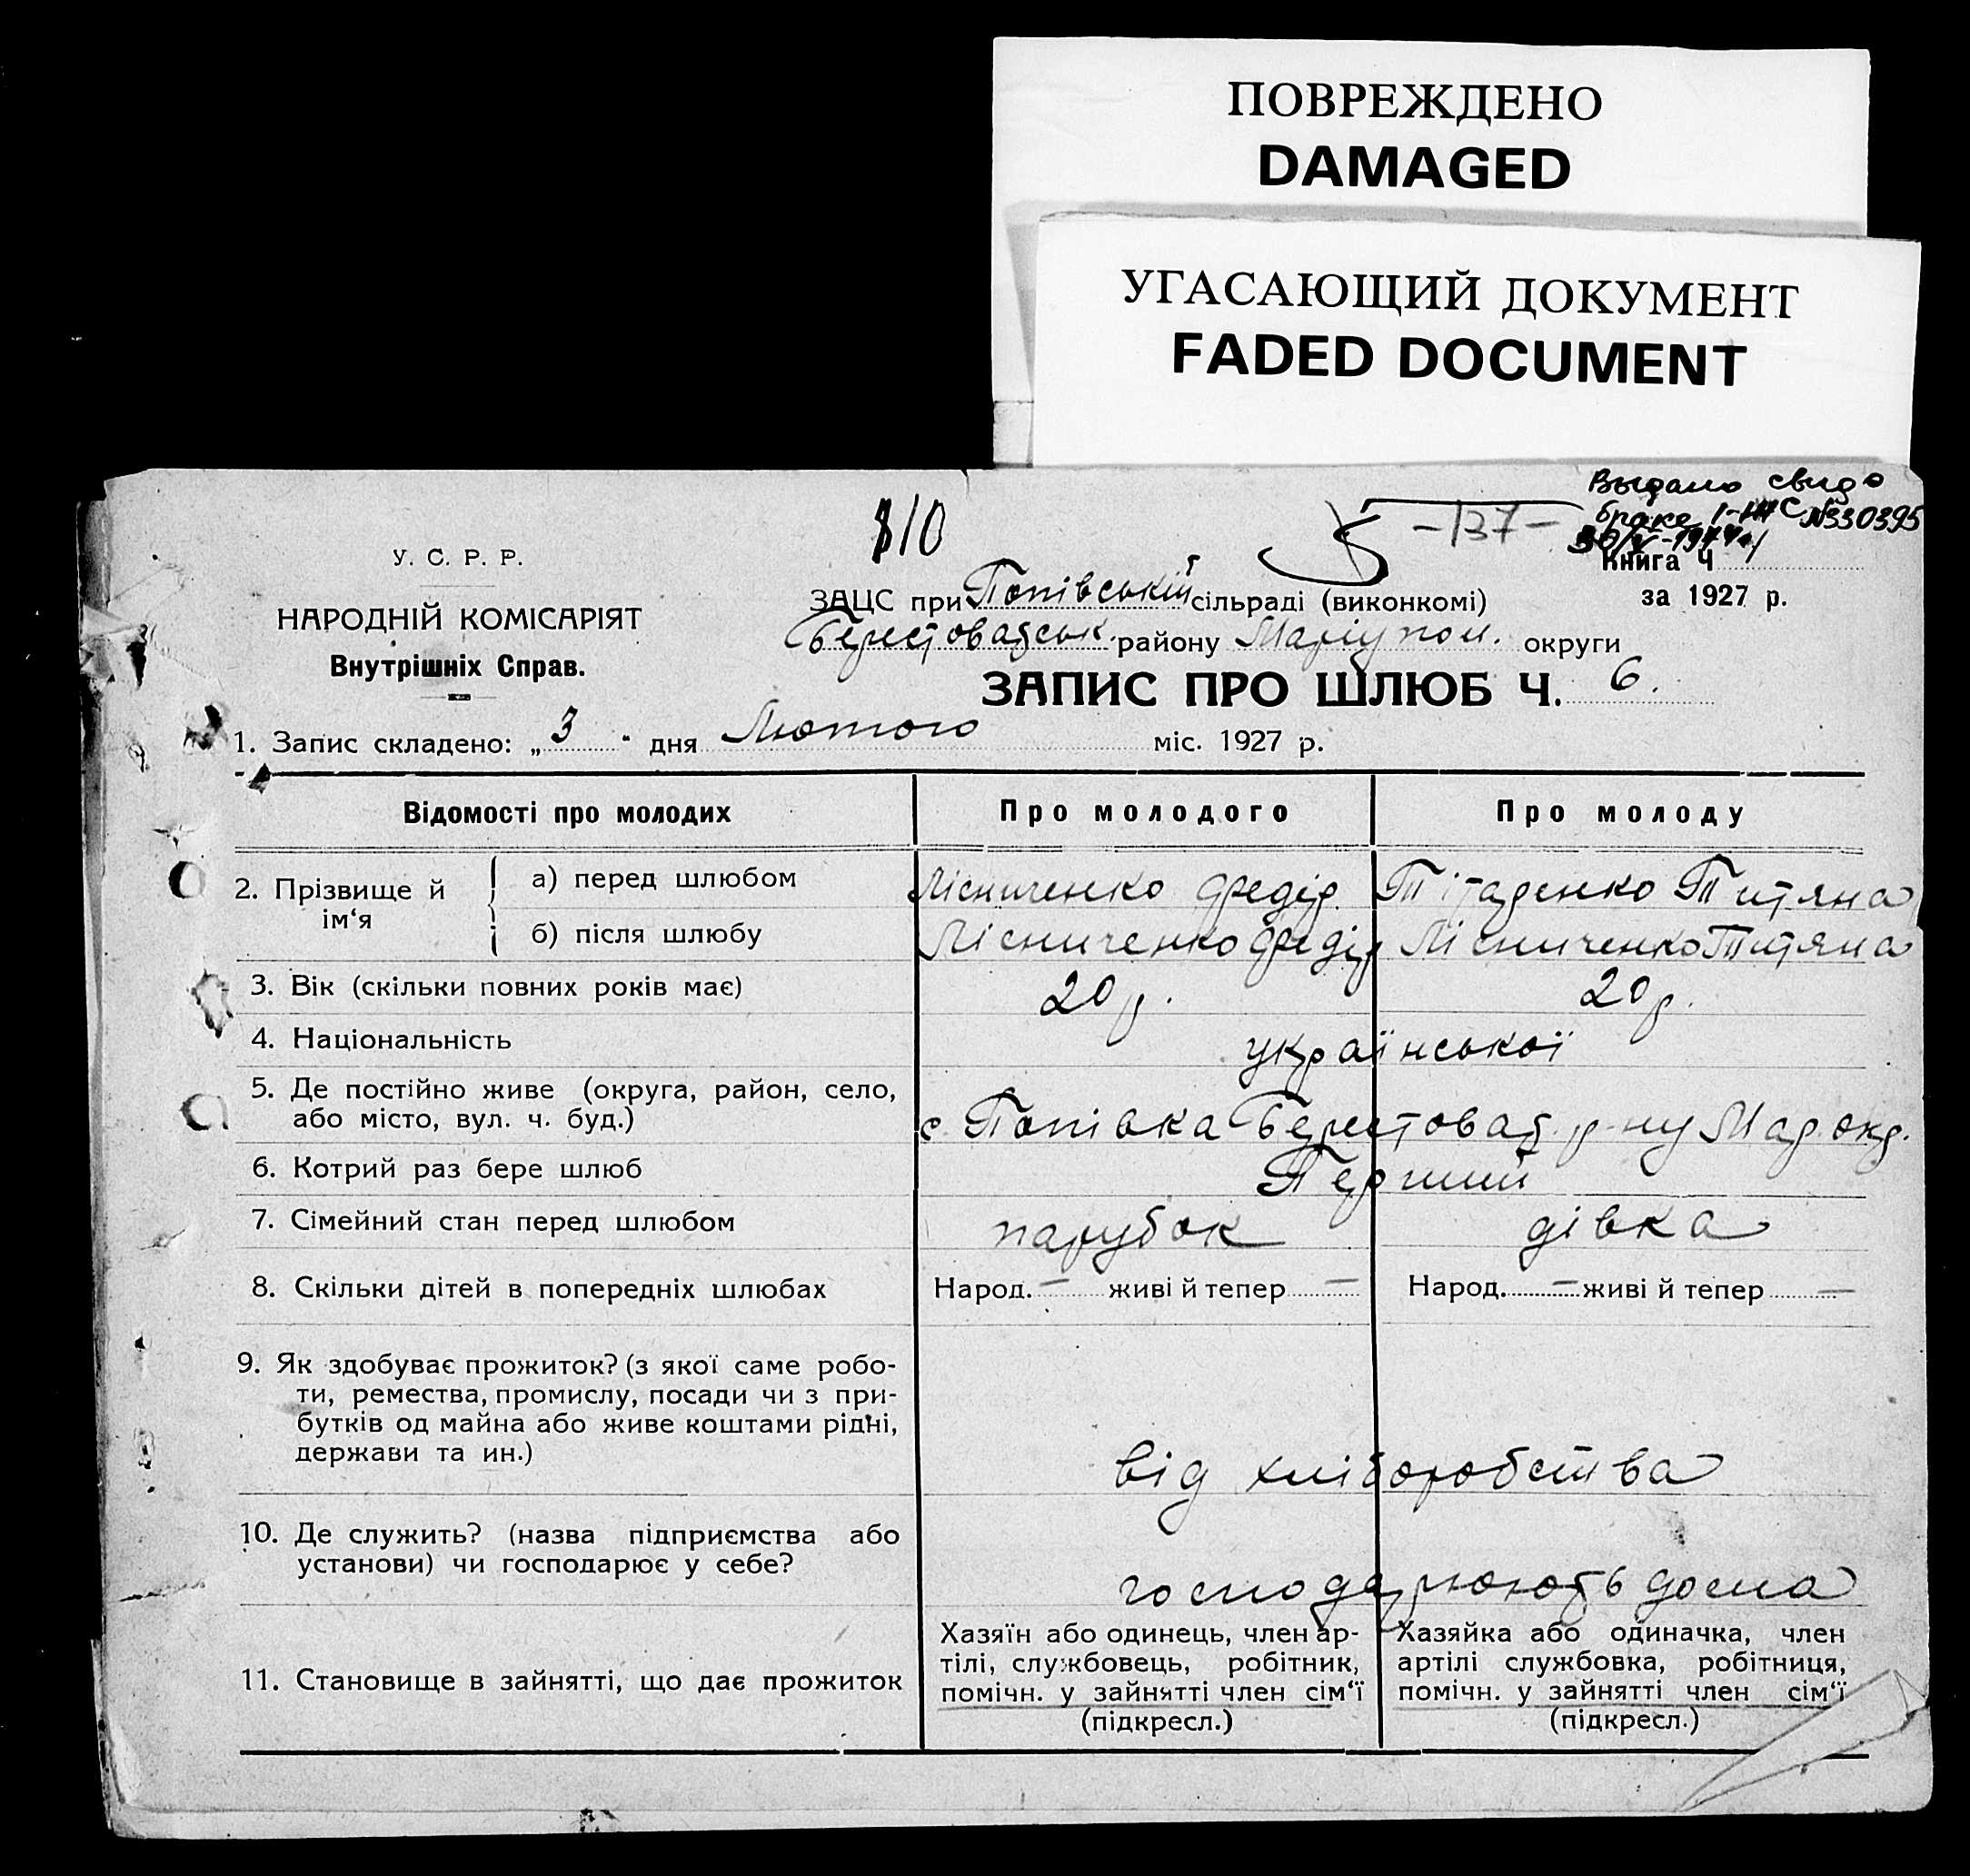 ПОВРЕЖДЕНО
DAMAGED
УГАСАЮЩИЙ ДОКУМЕНТ
FADED DOCUMENT
Выдано свид о
браке №330395
10
-137-
Книга Ч
У. С. Р. Р.
НАРОДНІЙ КОМІСАРІЯТ
Внутрішніх Справ.
ЗАЦС при Попівській сільраді (виконкомі)
за 1927 р.
району Маріупол. округи
ЗАПИС ПРО ШЛЮБ Ч. 6.
1. Запис складено: „3" дня Лютого міс. 1927 р.
Відомості про молодих
Про молодого
Про молоду
2. Прізвище й ім‘я
а) перед шлюбом
Лісниченко Федір
Титяна
б) після шлюбу
Лісниченко Федір
Лісниченко Титяна
3. Вік (скільки повних років має)
20 р.
20 р.
4. Національність
української
5. Де постійно живе (округа, район, село,
або місто, вул. ч. буд.)
с. Попівка Берестоват. р-ну Мар. окр.
6. Котрий раз бере шлюб
Перший
7. Сімейний стан перед шлюбом
парубок
дівка
8. Скільки дітей в попередніх шлюбах
Народ. — живі й тепер —
Народ. — живі й тепер —
9. Як здобуває прожиток? (з якої саме робо-
ти, ремества, промислу, посади чи з при-
бутків од майна або живе коштами рідні,
держави та ин.)
від хліборобства
10. Де служить? (назва підприємства або
установи) чи господарює у себе?
господарюють дома
11. Становище в зайнятті, що дає прожиток
Хазяїн або одинець, член ар-
тілі, службовець, робітник,
помічн. у зайнятті член сім‘ї
(підкресл.)
Хазяйка або одиначка, член
артілі службовка, робітниця,
помічн. у зайнятті член сім‘ї
(підкресл.)